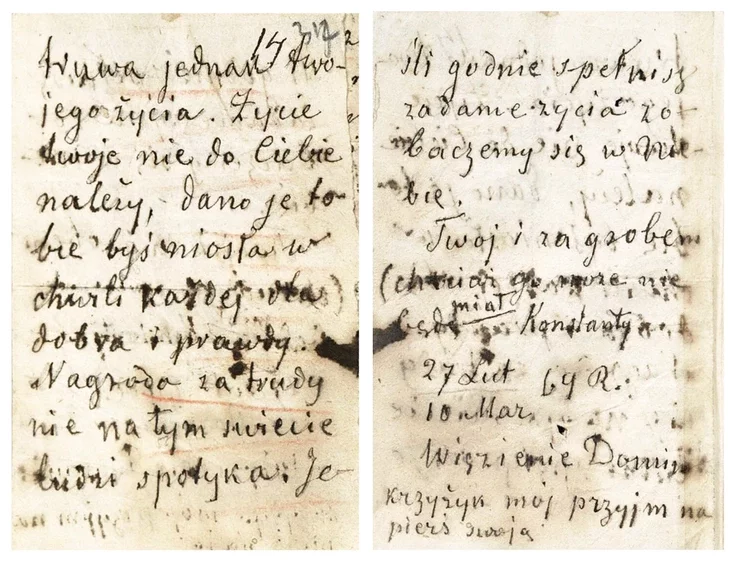 312
14
trywa jednak two-
jego życia. Życie
twoje nie do Ciebie
należy, dano je to-
bie byś niosła w
chwili każdej dla
dobra i prawdy.
Nagroda za trudy
nie na tym świecie
ludzi spotyka. Je-
śli godnie spełnisz
zadanie życia zo-
baczemy się w Nie-
bie.
Twoj i za grobem
(chociaż go może nie
będę miał Konstanty.
27 Lut 64 R.
10 Mar
Więzienie Domin
krzyżyk moj przyjm na
pierś swoją